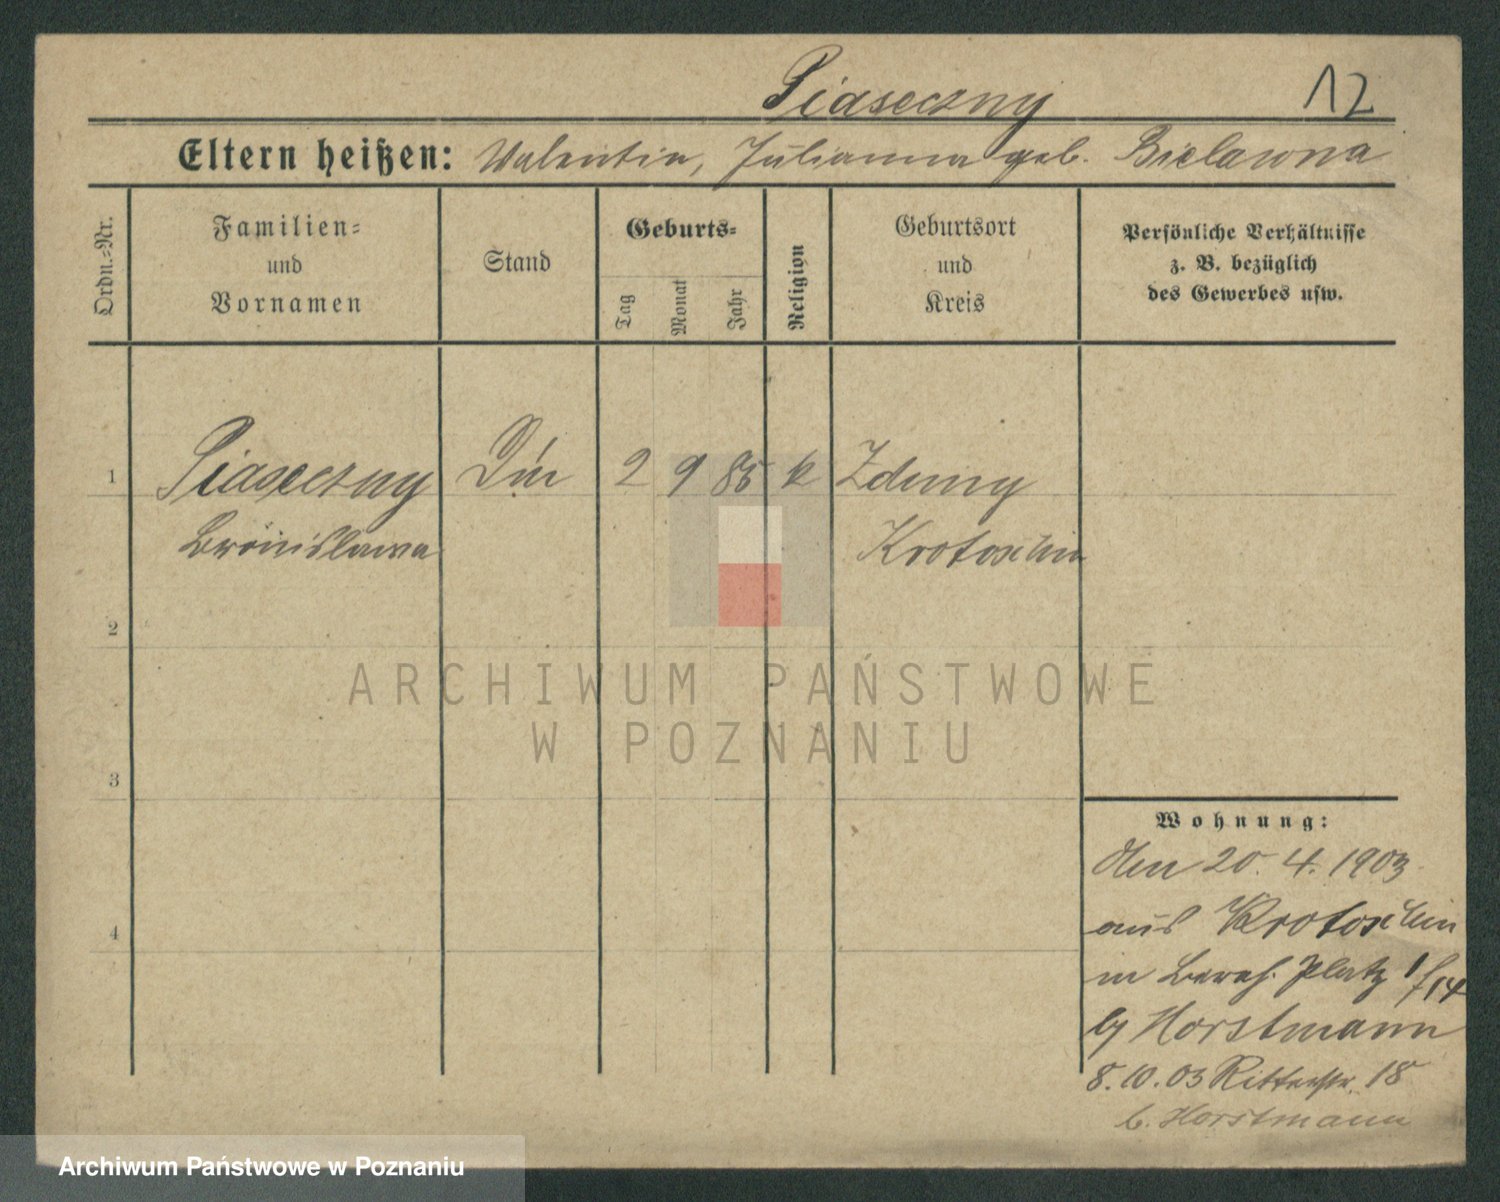 Piaseczny 12
Eltern heißen: Valentin, Julianna geb. Bielawna
Ordn.-Nr.
Familien-
und
Vornamen
Stand
Geburts-
Tag
Monat
Jahr
Religion
Geburtsort
und
Kreis
Persönliche Verhältnisse
z. B. bezüglich
des Gewerbes usw.
1 Piaseczny 2 9 85 k Zduny
Bronislawa Krotoschin
2
3
4
Wohnung:
den 20. 4. 1903
aus Krotoschin
in Platz 1/14
by Horstmann
8. 10. 03 Ritterstr. 18
b. Horstmann
ARCHIWUM PAŃSTWOWE
W POZNANIU
Archiwum Państwowe w Poznaniu